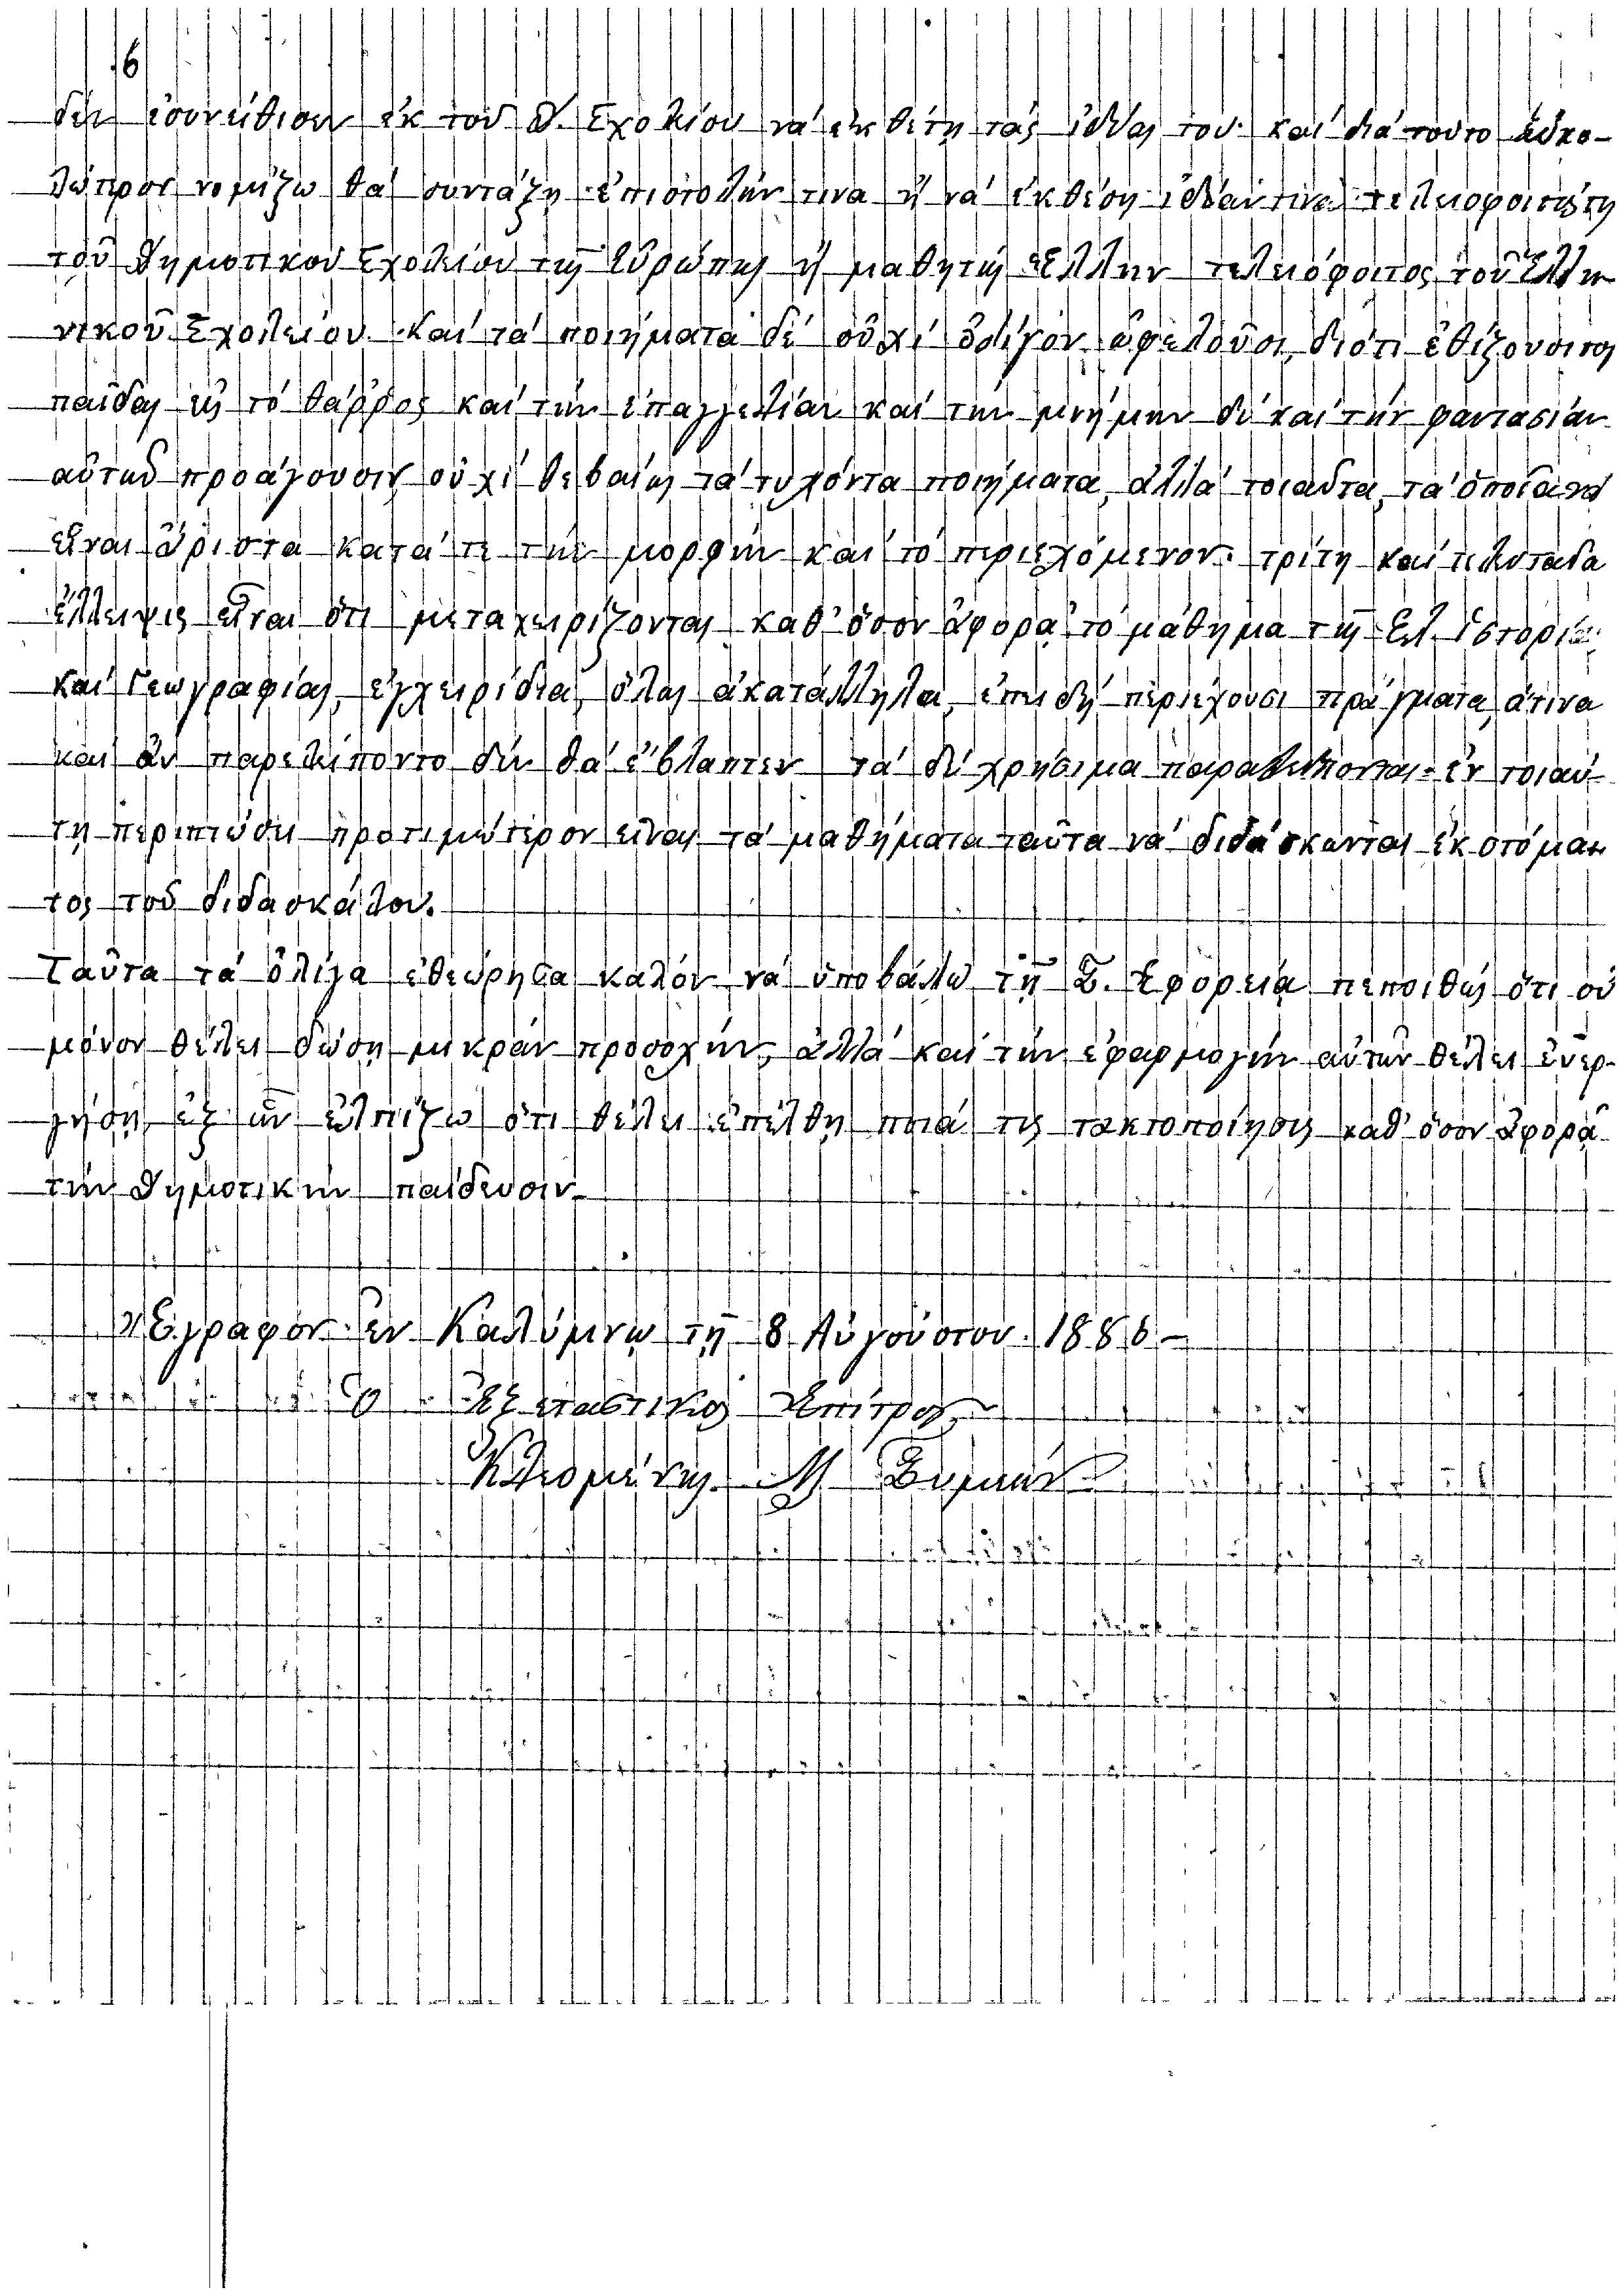 6
δὲν ἐσυνείθισεν ἐκ τοῦ Δ. Σχολείου νά ἐκθέτῃ τάς ἰδέας του· καί διά τοῦτο εὐκο-
λώτερον νομίζω θά συντάξῃ ἐπιστολήν τινα ἤ νά ἐκθέσῃ ἰδέαν τινά τελειοφοιτητής
τοῦ Δημοτικοῦ Σχολείου τῆς Εὐρώπης ἤ μαθητής Ἕλλην τελειόφοιτος τοῦ Ἑλλη-
νικοῦ Σχολείου. Καί τά ποιήματα δέ οὐχί ὀλίγον ὠφελοῦσι, διότι ἐθίζουσι τούς
παῖδας εἰς τό θάῤῥος καί τήν ἐπαγγελίαν καί τήν μνήμην δέ καί τήν φαντασίαν
αὐτῶν προάγουσιν οὐχί βεβαίως τά τυχόντα ποιήματα, ἀλλά τοιαῦτα, τά ὁποῖα νά
εἶναι ἄριστα κατά τε τήν μορφήν καί τό περιεχόμενον· τρίτη καί τελευταῖα
ἔλλειψις εἶναι ὅτι μεταχειρίζονται καθ' ὅσον ἀφορᾷ τό μάθημα τῆς Ἑλ. Ἱστορίας
καί Γεωγραφίας, ἐγχειρίδια, ὅλως ἀκατάλληλα, ἐπειδή περιέχουσι πράγματα, ἅτινα
καί ἄν παρελείποντο δέν θά ἔβλαπτεν τά δέ χρήσιμα παραλείπονται· ἐν τοιαύ-
τῃ περιπτώσει προτιμώτερον εἶναι τά μαθήματα ταῦτα νά διδάσκωνται ἐκ στόμα-
τος τοῦ διδασκάλου.
Ταῦτα τά ὀλίγα ἐθεώρησα καλόν νά ὑποβάλω τῇ Σ. Ἐφορείᾳ πεποιθώς ὅτι οὐ
μόνον θέλει δώσῃ μικράν προσοχήν, ἀλλά καί τήν ἐφαρμογήν αὐτῶν θέλει ἐνερ-
γήσῃ, ἐξ ὧν ἐλπίζω ὅτι θέλει ἐπέλθῃ ποιά τις τακτοποίησις καθ' ὅσον ἀφορᾷ
τήν Δημοτικήν παίδευσιν.
Ἔγραφον ἐν Καλύμνῳ τῇ 8 Αὐγούστου 1886 -
Ὁ Ἐξεταστικός Ἐπίτροπος
Κλεομένης Μ